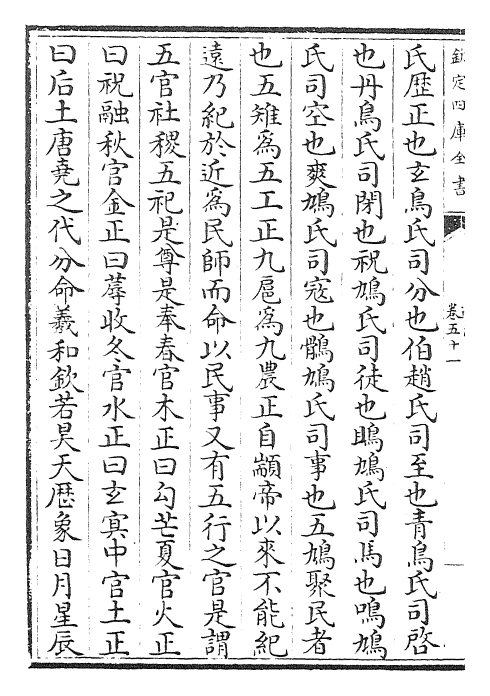 欽定四庫全書
卷五十一
氏歴正也玄鳥氏司分也伯趙氏司至也青鳥氏司啓
也丹鳥氏司閉也祝鳩氏司徒也鴡鳩氏司馬也鳴鳩
氏司空也爽鳩氏司寇也鶻鳩氏司事也五鳩聚民者
也五雉爲五工正九扈爲九農正自顓帝以來不能紀
遠乃紀於近爲民師而命以民事又有五行之官是謂
五官社稷五祀是尊是奉春官木正曰勾芒夏官火正
曰祝融秋官金正曰蓐收冬官水正曰玄冥中官土正
曰后土唐堯之代分命羲和欽若昊天歴象日月星辰